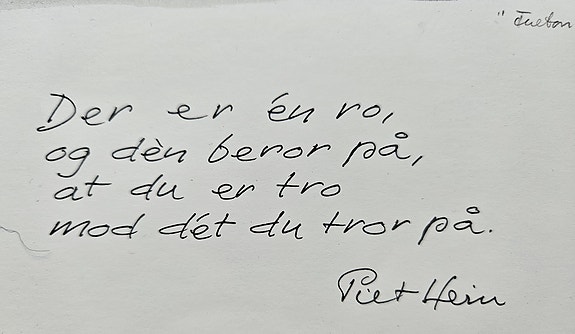 Der er én ro,
og dèn beror på,
at du er tro
mod dét du tror på.
Piet Hein